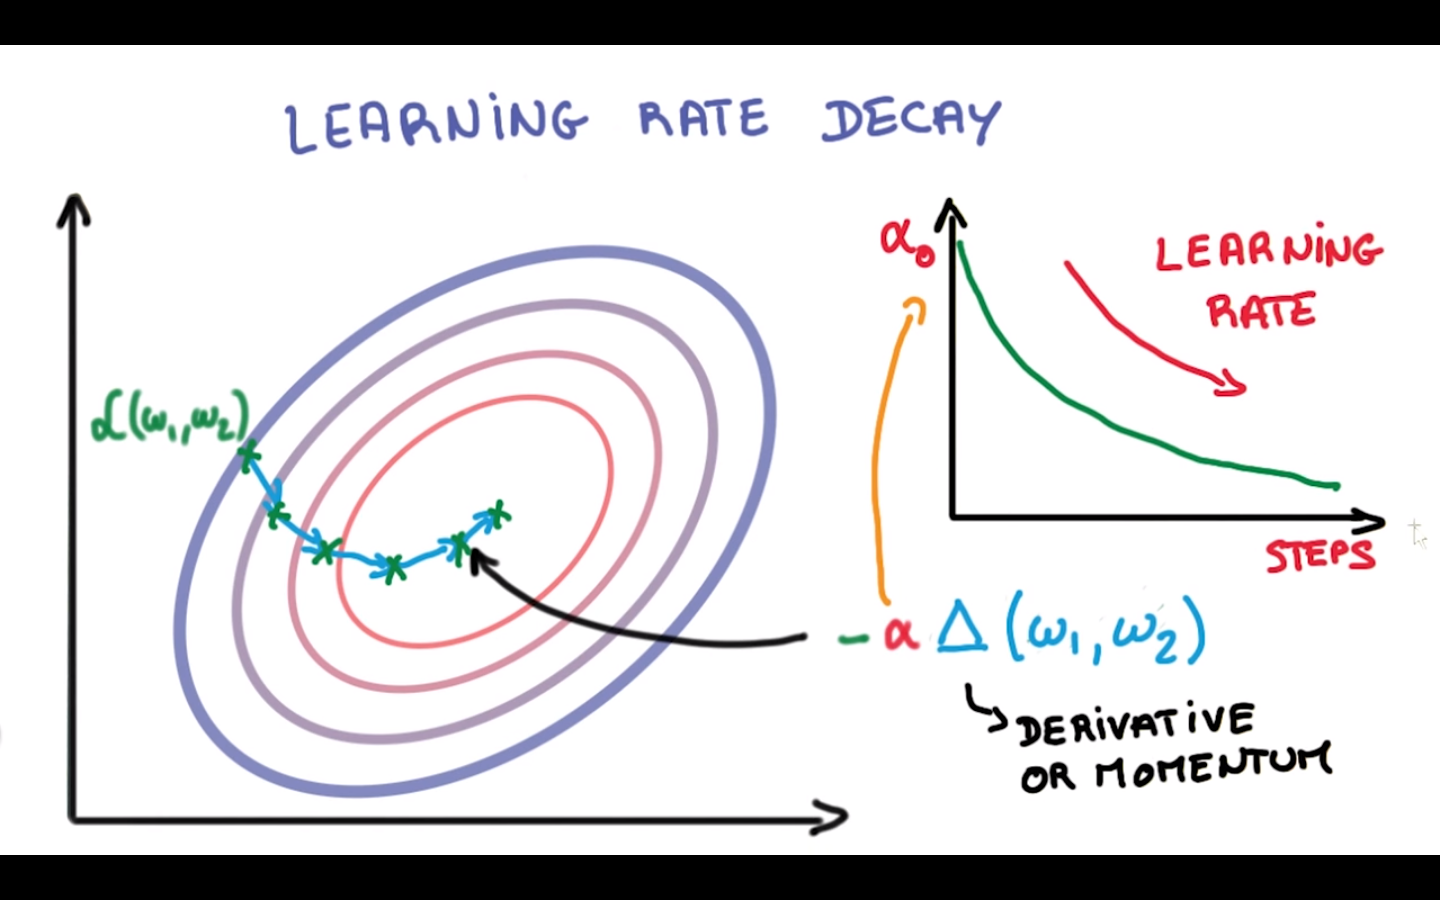 LEARNING RATE DECAY
α₀
LEARNING
RATE
ℒ(ω₁,ω₂)
STEPS
-α Δ(ω₁,ω₂)
DERIVATIVE
OR MOMENTUM